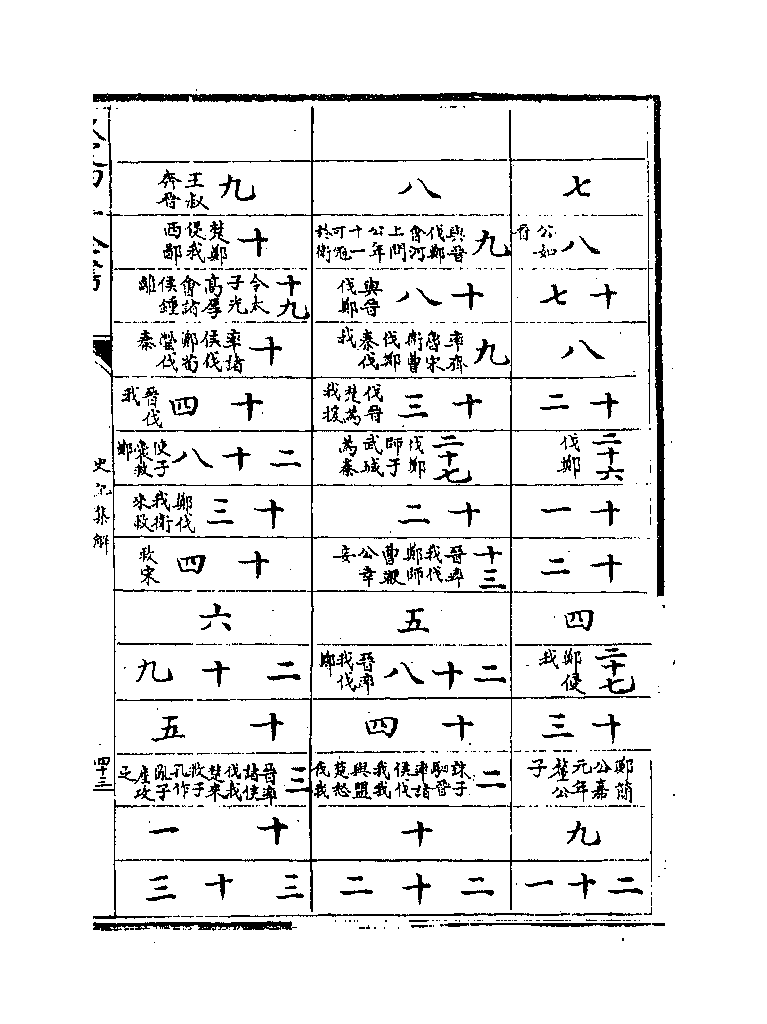 七
八 公如晉
十七
八
十二
二十六 伐鄭
十一
十二
四
二十七 鄭侵我
十三
鄭簡公嘉元年釐公子
九
二十一
八
九 與晉伐鄭會河上問公年十一可冠於衛
十八 與晉伐鄭
九 率齊魯宋衛曹伐鄭秦伐我
十三 伐晉楚為我援
二十七 伐鄭師于武城為秦
十二
十三 晉率我伐鄭師曹鞭公幸妾
五
二十八 晉率我伐鄭
十四
二 誅子駟晉率諸侯伐我我與盟楚怒伐我
十
二十二
九 王叔奔晉
十 楚鄭侵我西鄙
十九 令太子光高厚會諸侯鍾離
十 率諸侯伐鄭荀罃伐秦
十四 晉伐我
二十八 使子囊救鄭
十三 鄭伐我衛來救
十四 救宋
六
二十九
十五
三 晉率諸侯伐我楚來救子孔作亂子產攻之
十一
三十三
史記集解
四十三